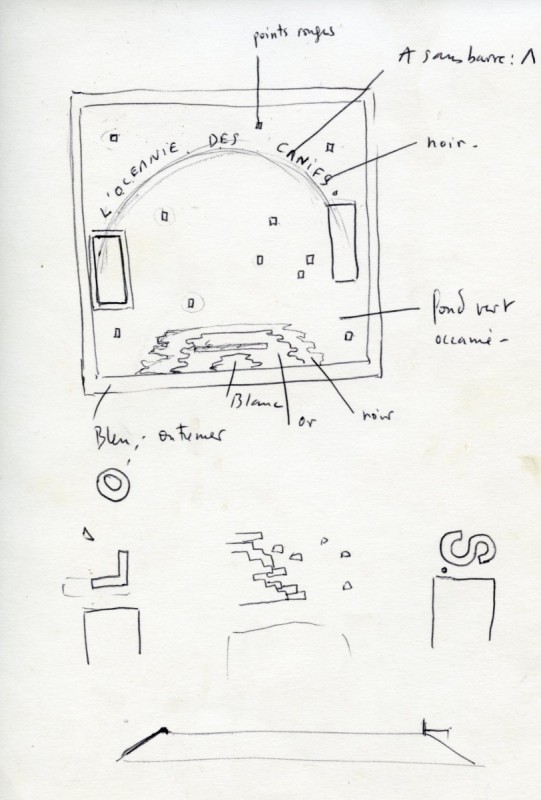 points rouges
A sans barre : Λ
L'OCEANIE DES CANIFS.
noir.
Fond vert
océanie.
Blanc
or
noir
Bleu, outremer
O
L
S